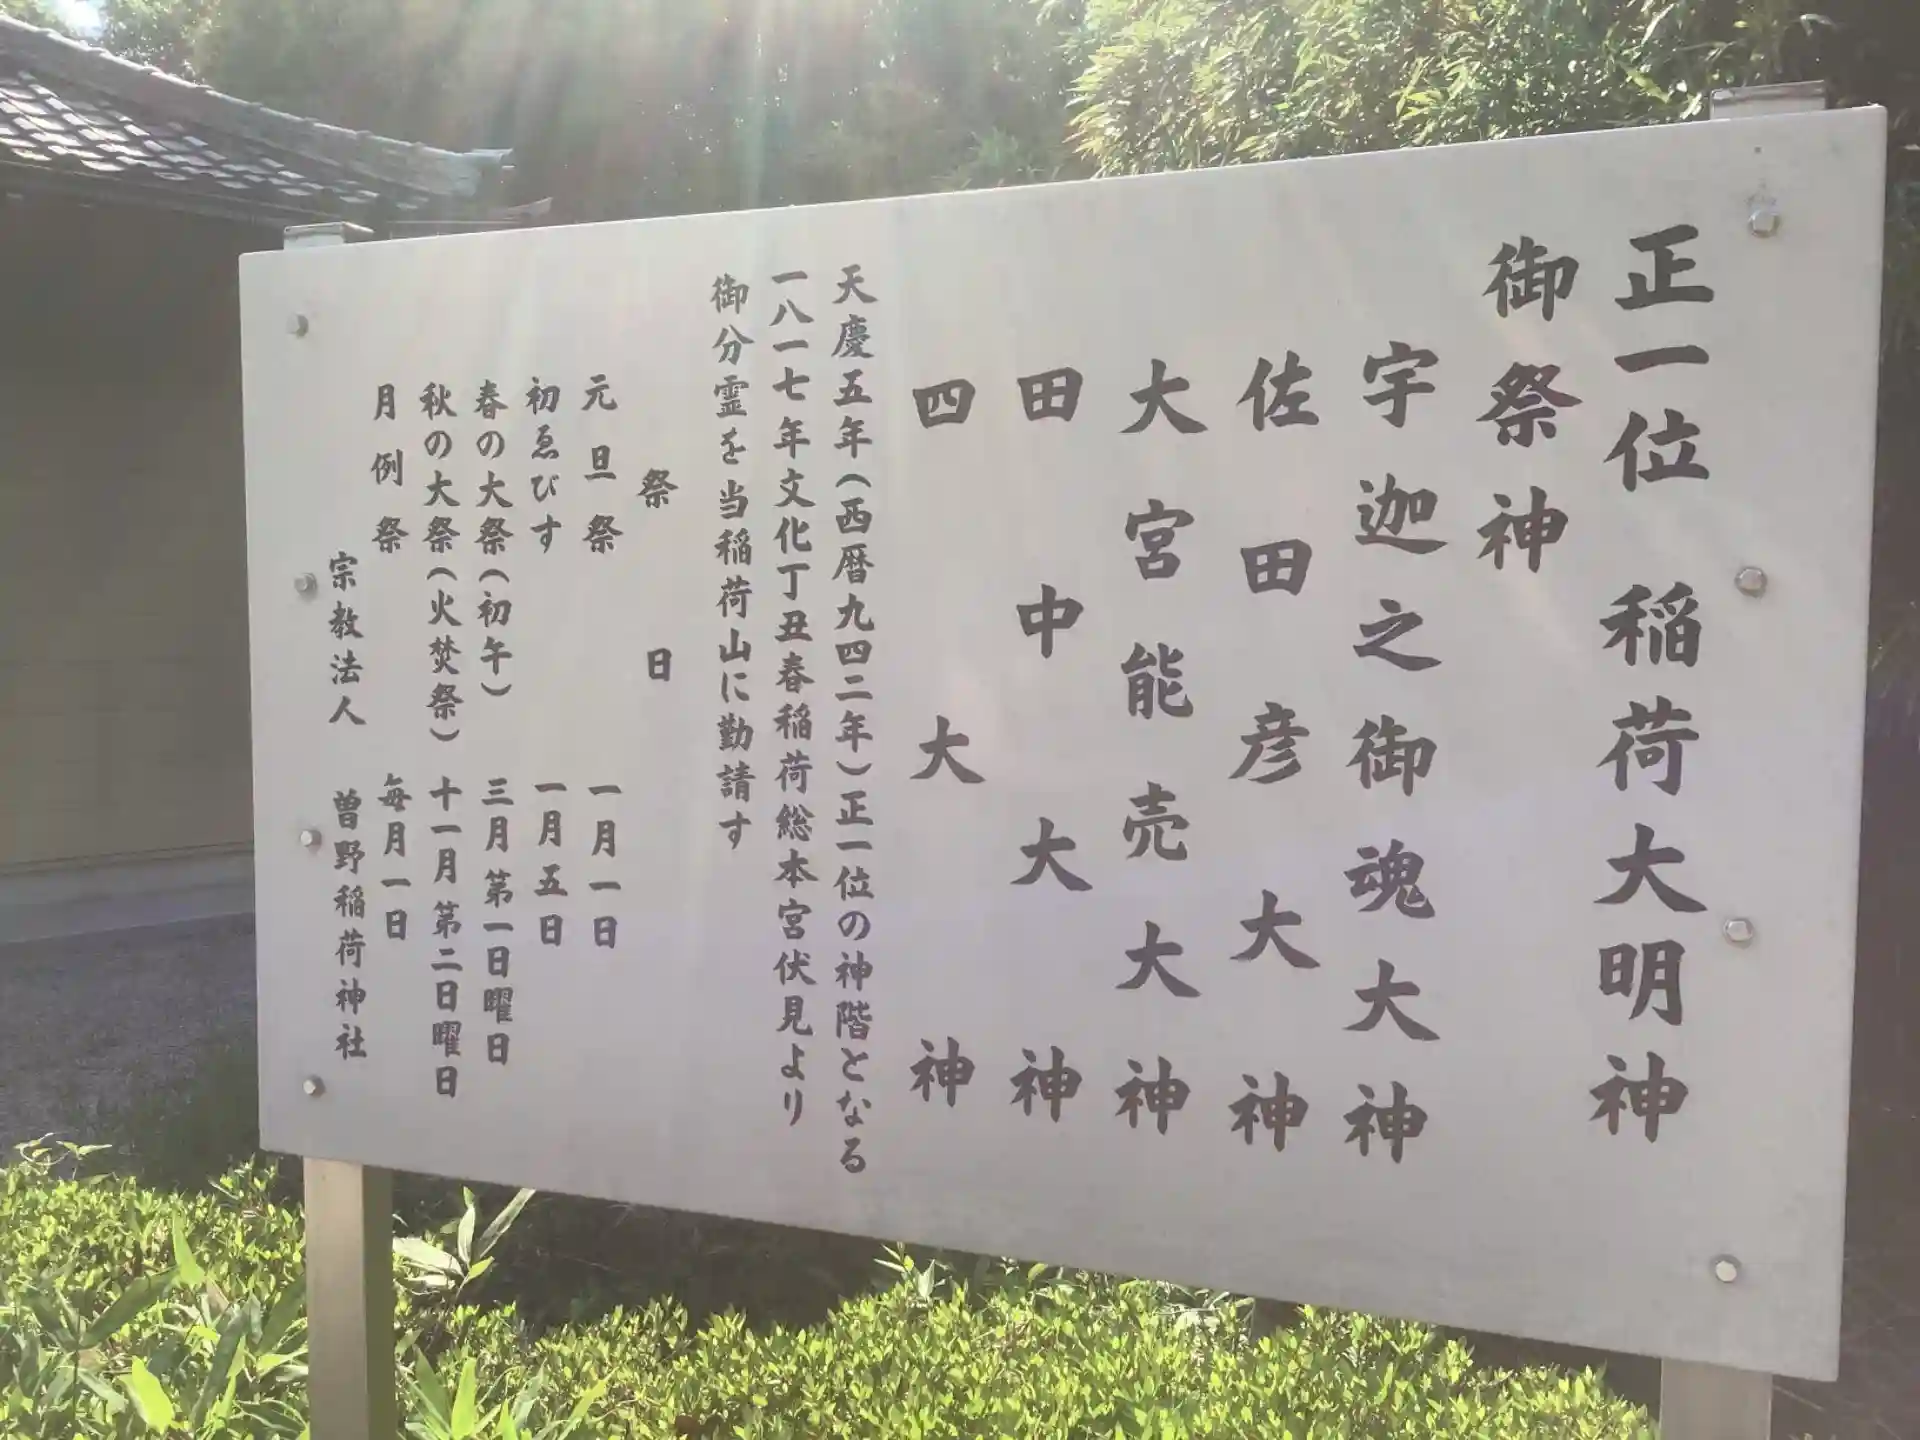 正一位 稲荷大明神
御祭神
宇迦之御魂大神
佐田彦大神
大宮能売大神
田中大神
四大神
天慶五年(西暦九四二年)正一位の神階となる
一八一七年文化丁丑春稲荷総本宮伏見より
御分霊を当稲荷山に勤請す
祭日
元旦祭 一月一日
初ゑびす 一月五日
春の大祭(初午) 三月第一日曜日
秋の大祭(火焚祭) 十一月第二日曜日
月例祭 毎月一日
宗教法人 曽野稲荷神社